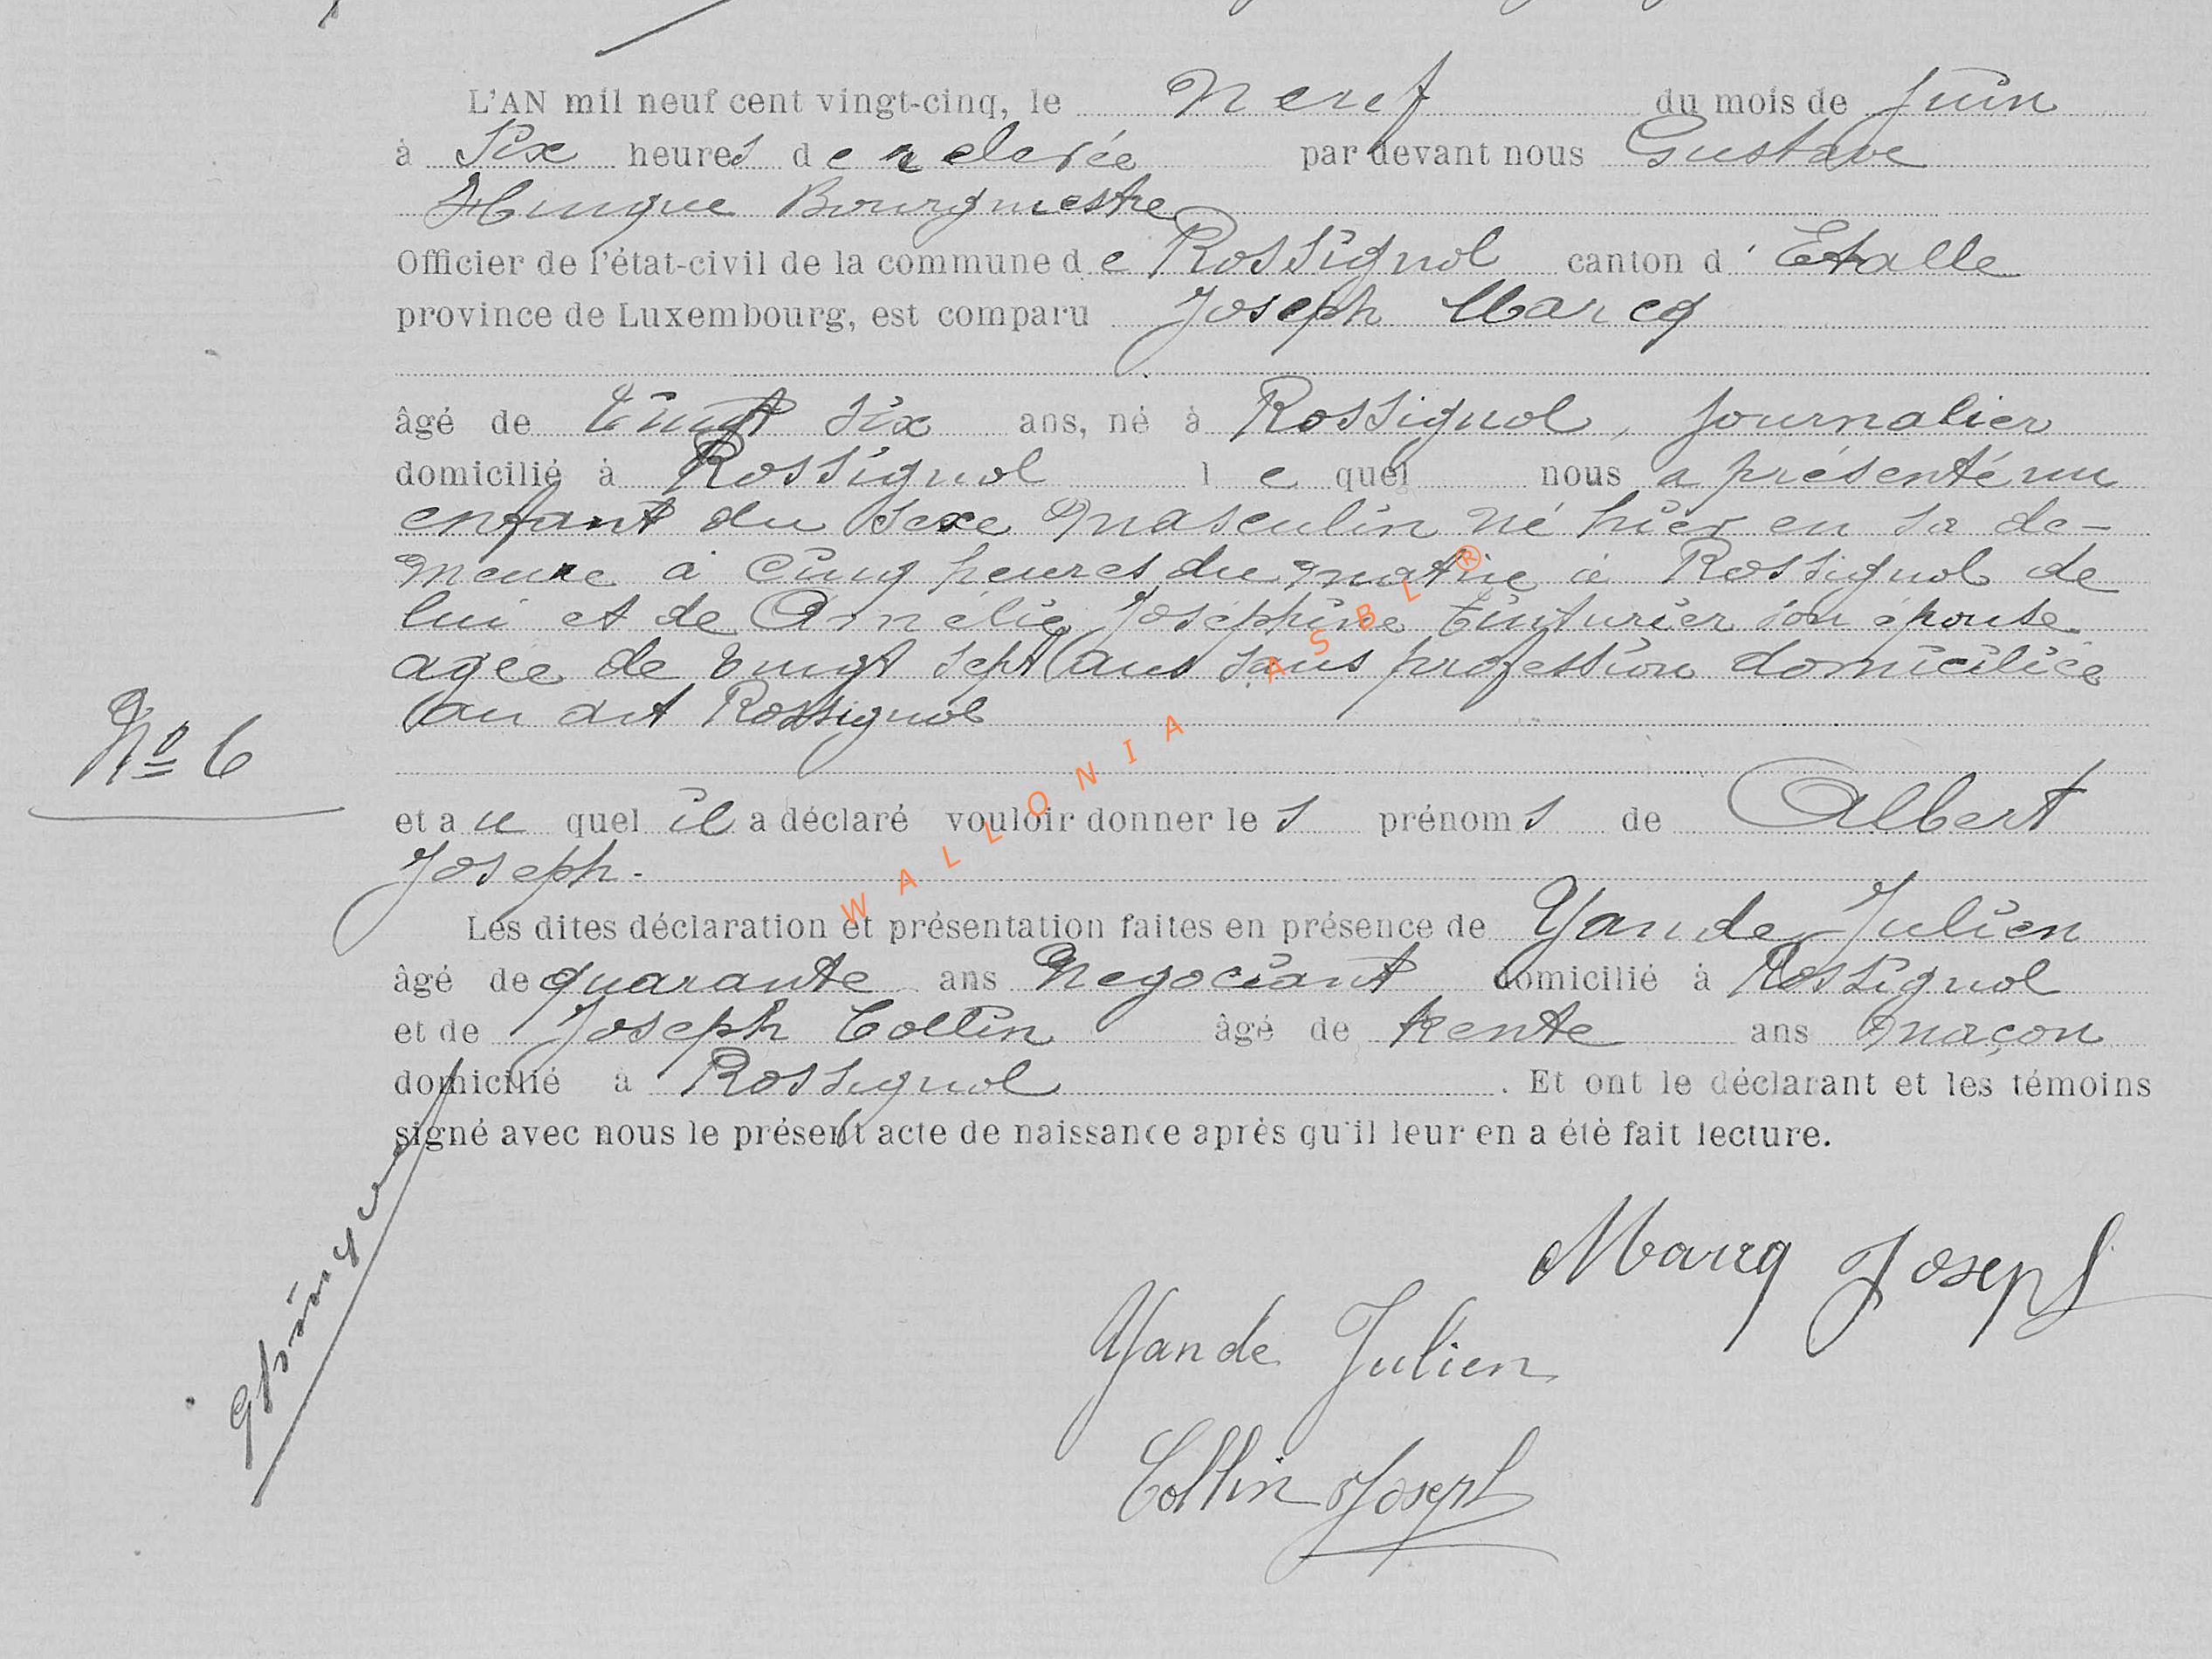 L'AN mil neuf cent vingt-cinq, le neuf du mois de juin
à six heures de relevée par devant nous Gustave
Hinque Bourgmestre
Officier de l'état-civil de la commune de Rossignol canton d'Etalle
province de Luxembourg, est comparu Joseph Marcq
âgé de vingt six ans, né à Rossignol, journalier
domicilié à Rossignol lequel nous a présenté un
enfant du sexe masculin né hier en sa de-
meure à cinq heures du matin à Rossignol de
lui et de Amélie Joséphine Tinturier son épouse
agée de vingt sept ans sans profession domiciliée
au dit Rossignol
No 6
et au quel il a déclaré vouloir donner les prénoms de Albert
Joseph.-
Les dites déclaration et présentation faites en présence de Yande Julien
âgé de quarante ans negociant domicilié à Rossignol
et de Joseph Collin âgé de trente ans maçon
domicilié à Rossignol. Et ont le déclarant et les témoins
signé avec nous le présent acte de naissance après qu'il leur en a été fait lecture.
Marcq Joseph
Yande Julien
Collin Joseph
WALLONIA ASBL ®